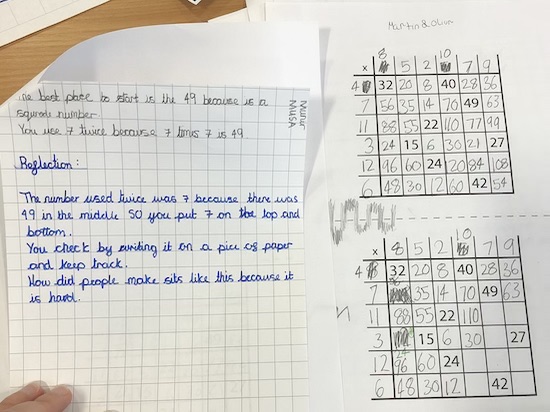 The best place to start is the 49 because is a
squrode number.
You use 7 twice because 7 times 7 is 49
Nunur
MUSA
Reflection:
The number used twice was 7 because there was
49 in the middle so you put 7 on the top and
bottom.
You check by writing it on a pice of paper
and keep track.
How did people make sits like this because it
is hard.
Martin & Oliur
8 10
x 5 2 7 9
4 32 20 8 40 28 36
7 56 35 14 70 49 63
11 88 55 22 110 77 99
3 24 15 6 30 21 27
12 96 60 24 120 84 108
6 48 30 12 60 42 54
10
x 8 5 2 7 9
4 32 20 8 40 28 36
7 35 14 70 49 63
11 88 55 22 110
3 15 6 30 27
12 96 60 24
6 48 30 12 42